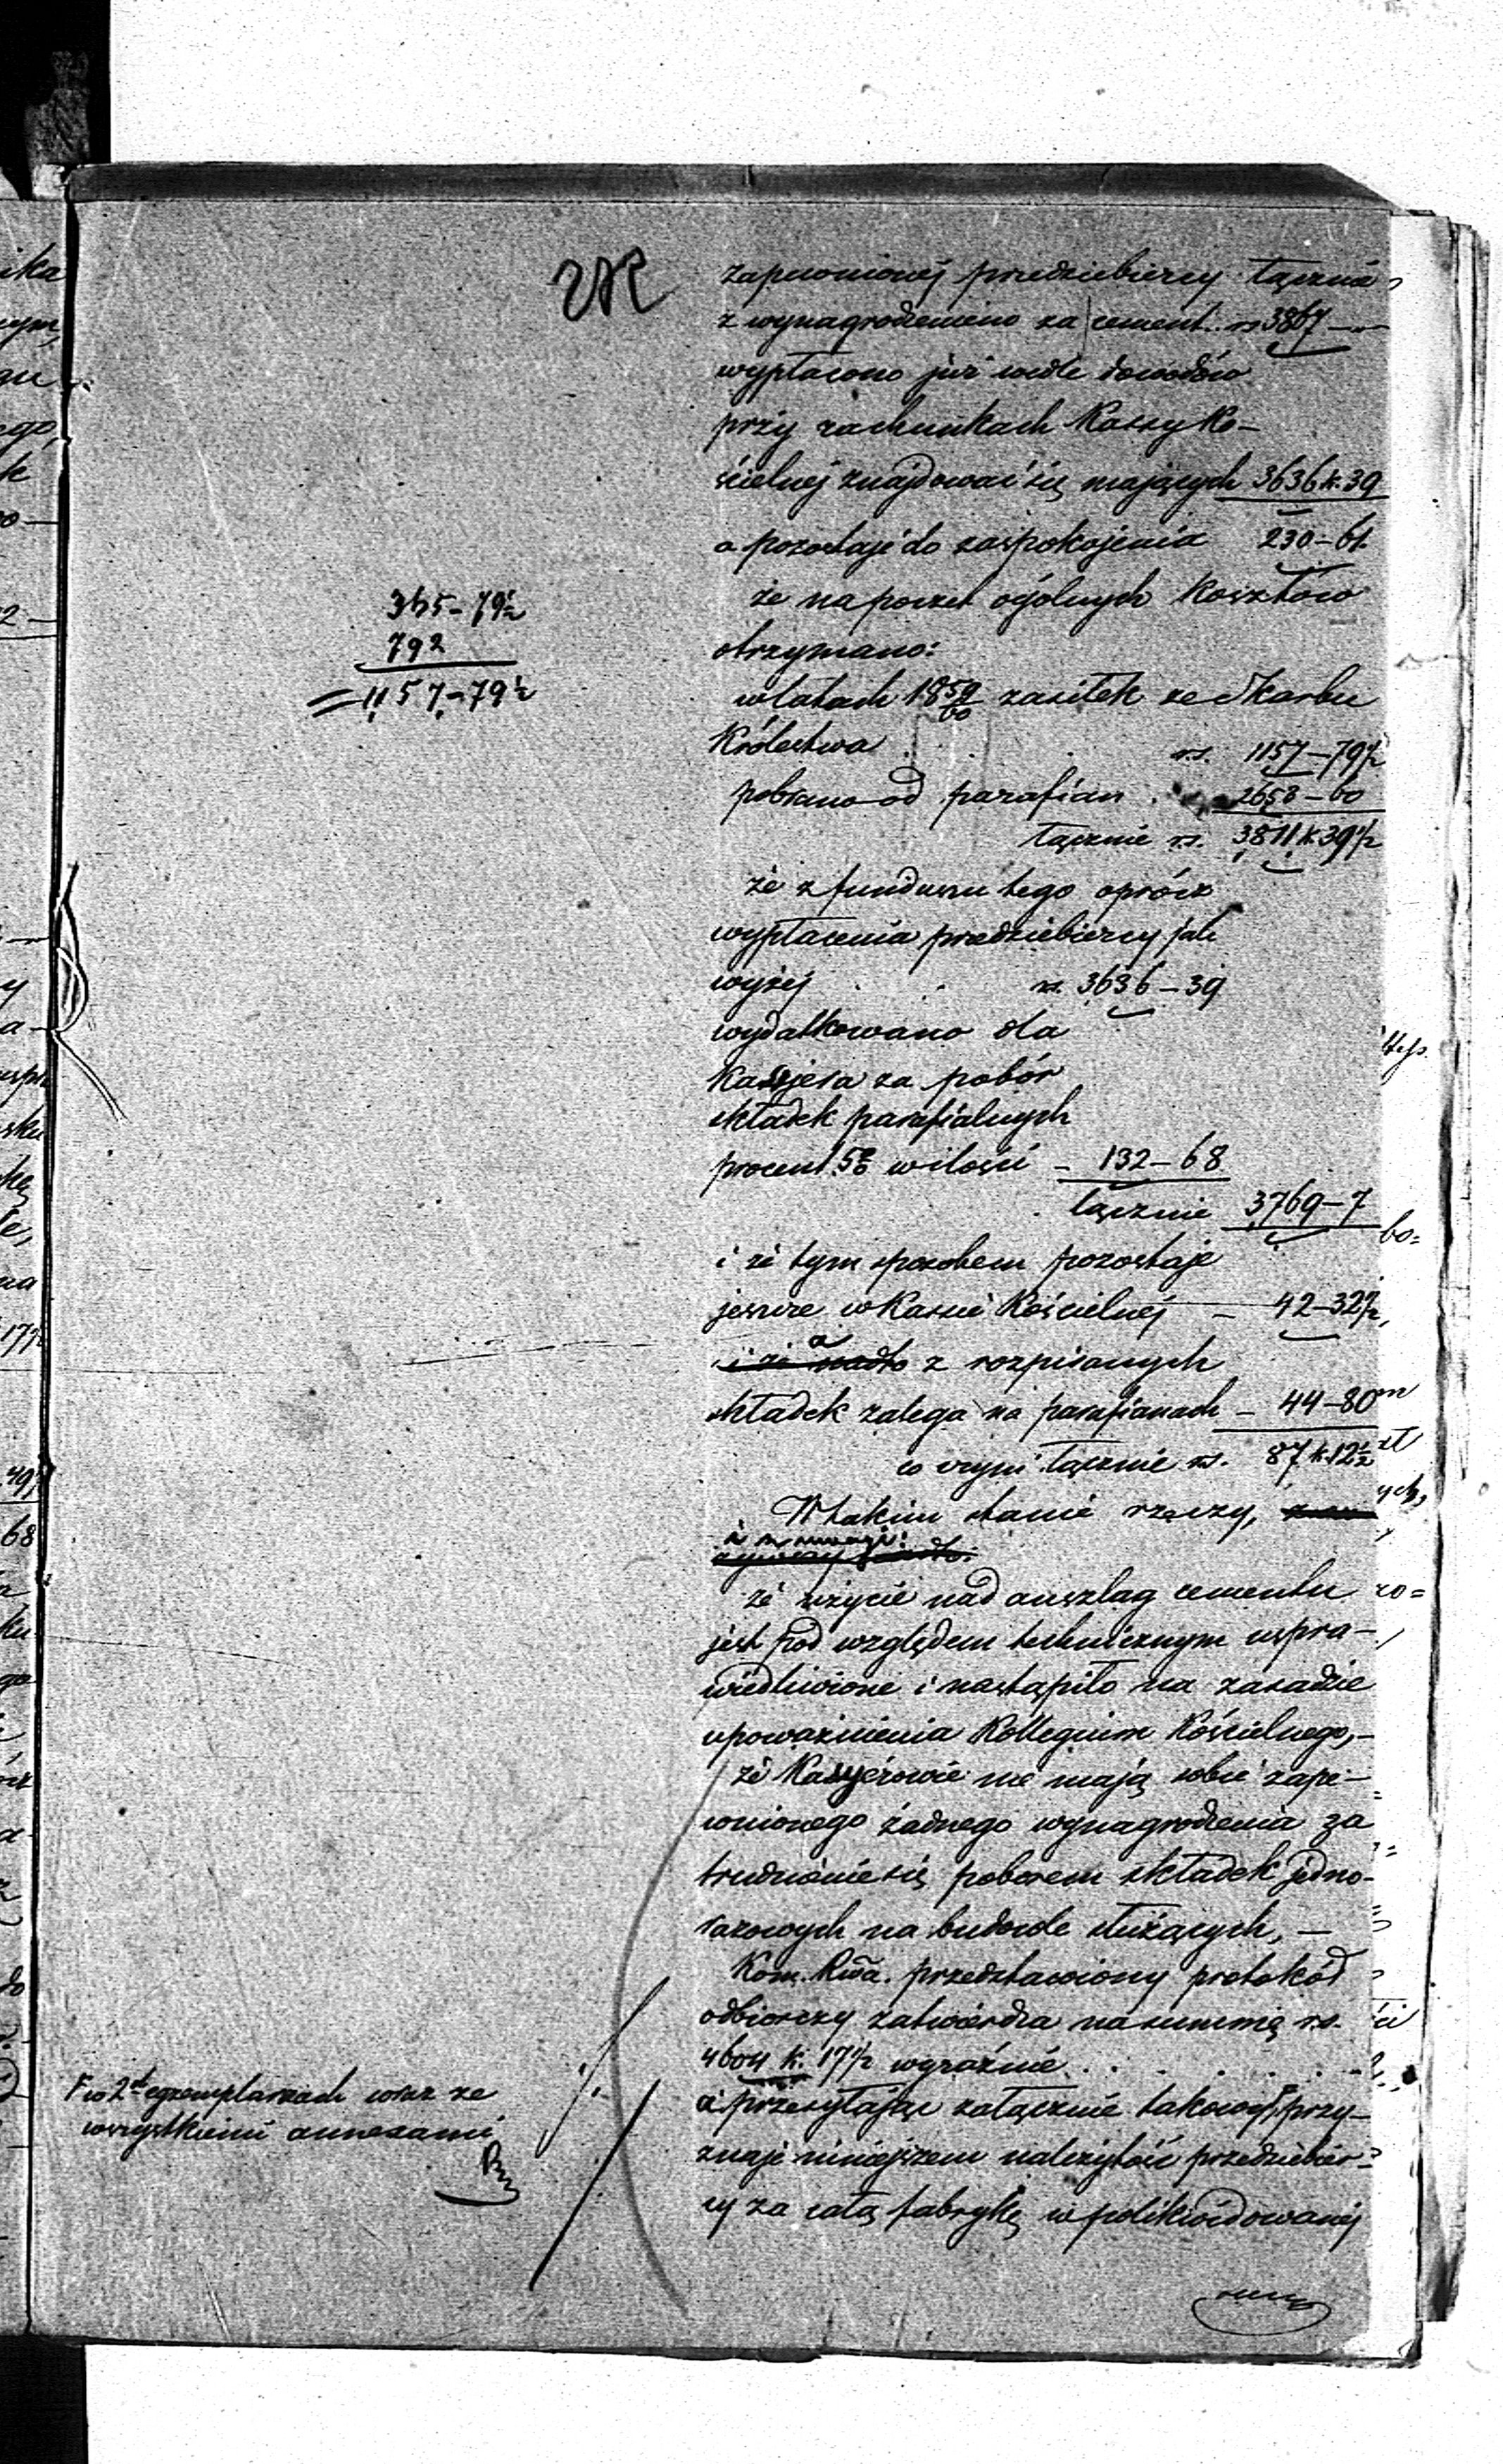 zapewnionéj przedsiebiercy łącznie
z wynagrodzeniem za cement rs 3867 —
wypłacono już wedle dowodów
przy rachunkach Kassy Ko-
ścielnéj znajdować się mających 3636 k. 39
a pozostaje do zaspokojenia 230 – 61.
że na poczet ogólnych kosztów
otrzymano:
w latach 1859/60 zasiłek ze Skarbu
Królestwa rs. 1157 – 79½
pobrano od parafian 2653 – 60
łącznie rs. 3811 k. 39½
że z funduszu tego oprócz
wypłacenia przedsiebiercy jak
wyżéj rs. 3636 – 39
wydatkowano dla
Kassjera za pobór
składek parafialnych
procent 5% w ilości – 132 – 68
łącznie 3769 – 7
i że tym sposobem pozostaje
jeszcze w Kassie Kościelnéj – 42 – 32½,
i że nadto a z rozpisanych
składek zalega na parafianach – 44 – 80
co czyni łącznie rs. 87 k. 12½
W takim stanie rzeczy,
i z uwagi:
że użycie nad anszlag cementu
jest pod względem technicznym uspra-
wiedliwione i nastąpiło na zasadzie
upoważnienia Kollegium Kościelnego, –
że Kassyerowie nie mają sobie zape-
wnionego żadnego wynagrodzenia za
trudnienie się poborem składek jedno-
razowych na budowle służących, –
Kom. Rwa. przedstawiony protokół
odbiorczy zatwierdza na summę rs.
4604 k. 17½ wyraźnie
a przesyłając załącznie takowy F przy-
znaje niniejszem należytość przedsiebier-
cy za całą fabrykę w polikwidowanéj
365 – 79½
792
= 1157 – 79½
F w 2ch egzemplarzach wraz ze
wszystkiemi annexami